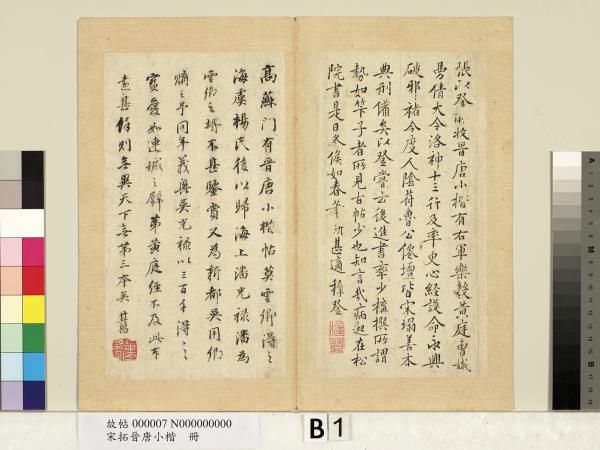 張以登所收晉唐小楷有右軍樂毅黃庭曹娥
曼倩大令洛神十三行及率更心經護命永興
破邪褚令度人陰符魯公僊壇皆宋搨善本
典刑備矣以登嘗云後進書率少檢撰所謂
勢如竿子者所見古帖少也知言哉病起在松
院書是日冬候如春筆研甚適 穉登
高蘇門有晉唐小楷帖莫雲卿得之
海虞楊氏後以歸海上潘光祿潘為
雲卿之壻不甚鑒賞又為新都吳用卿
購之予同年義興吳光祿以三百千得之
寶愛如連城之璧第黃庭經不及此本
遠甚餘則無異天下無第三本矣 其昌
故帖 000007 N000000000
宋拓晉唐小楷 冊
B 1